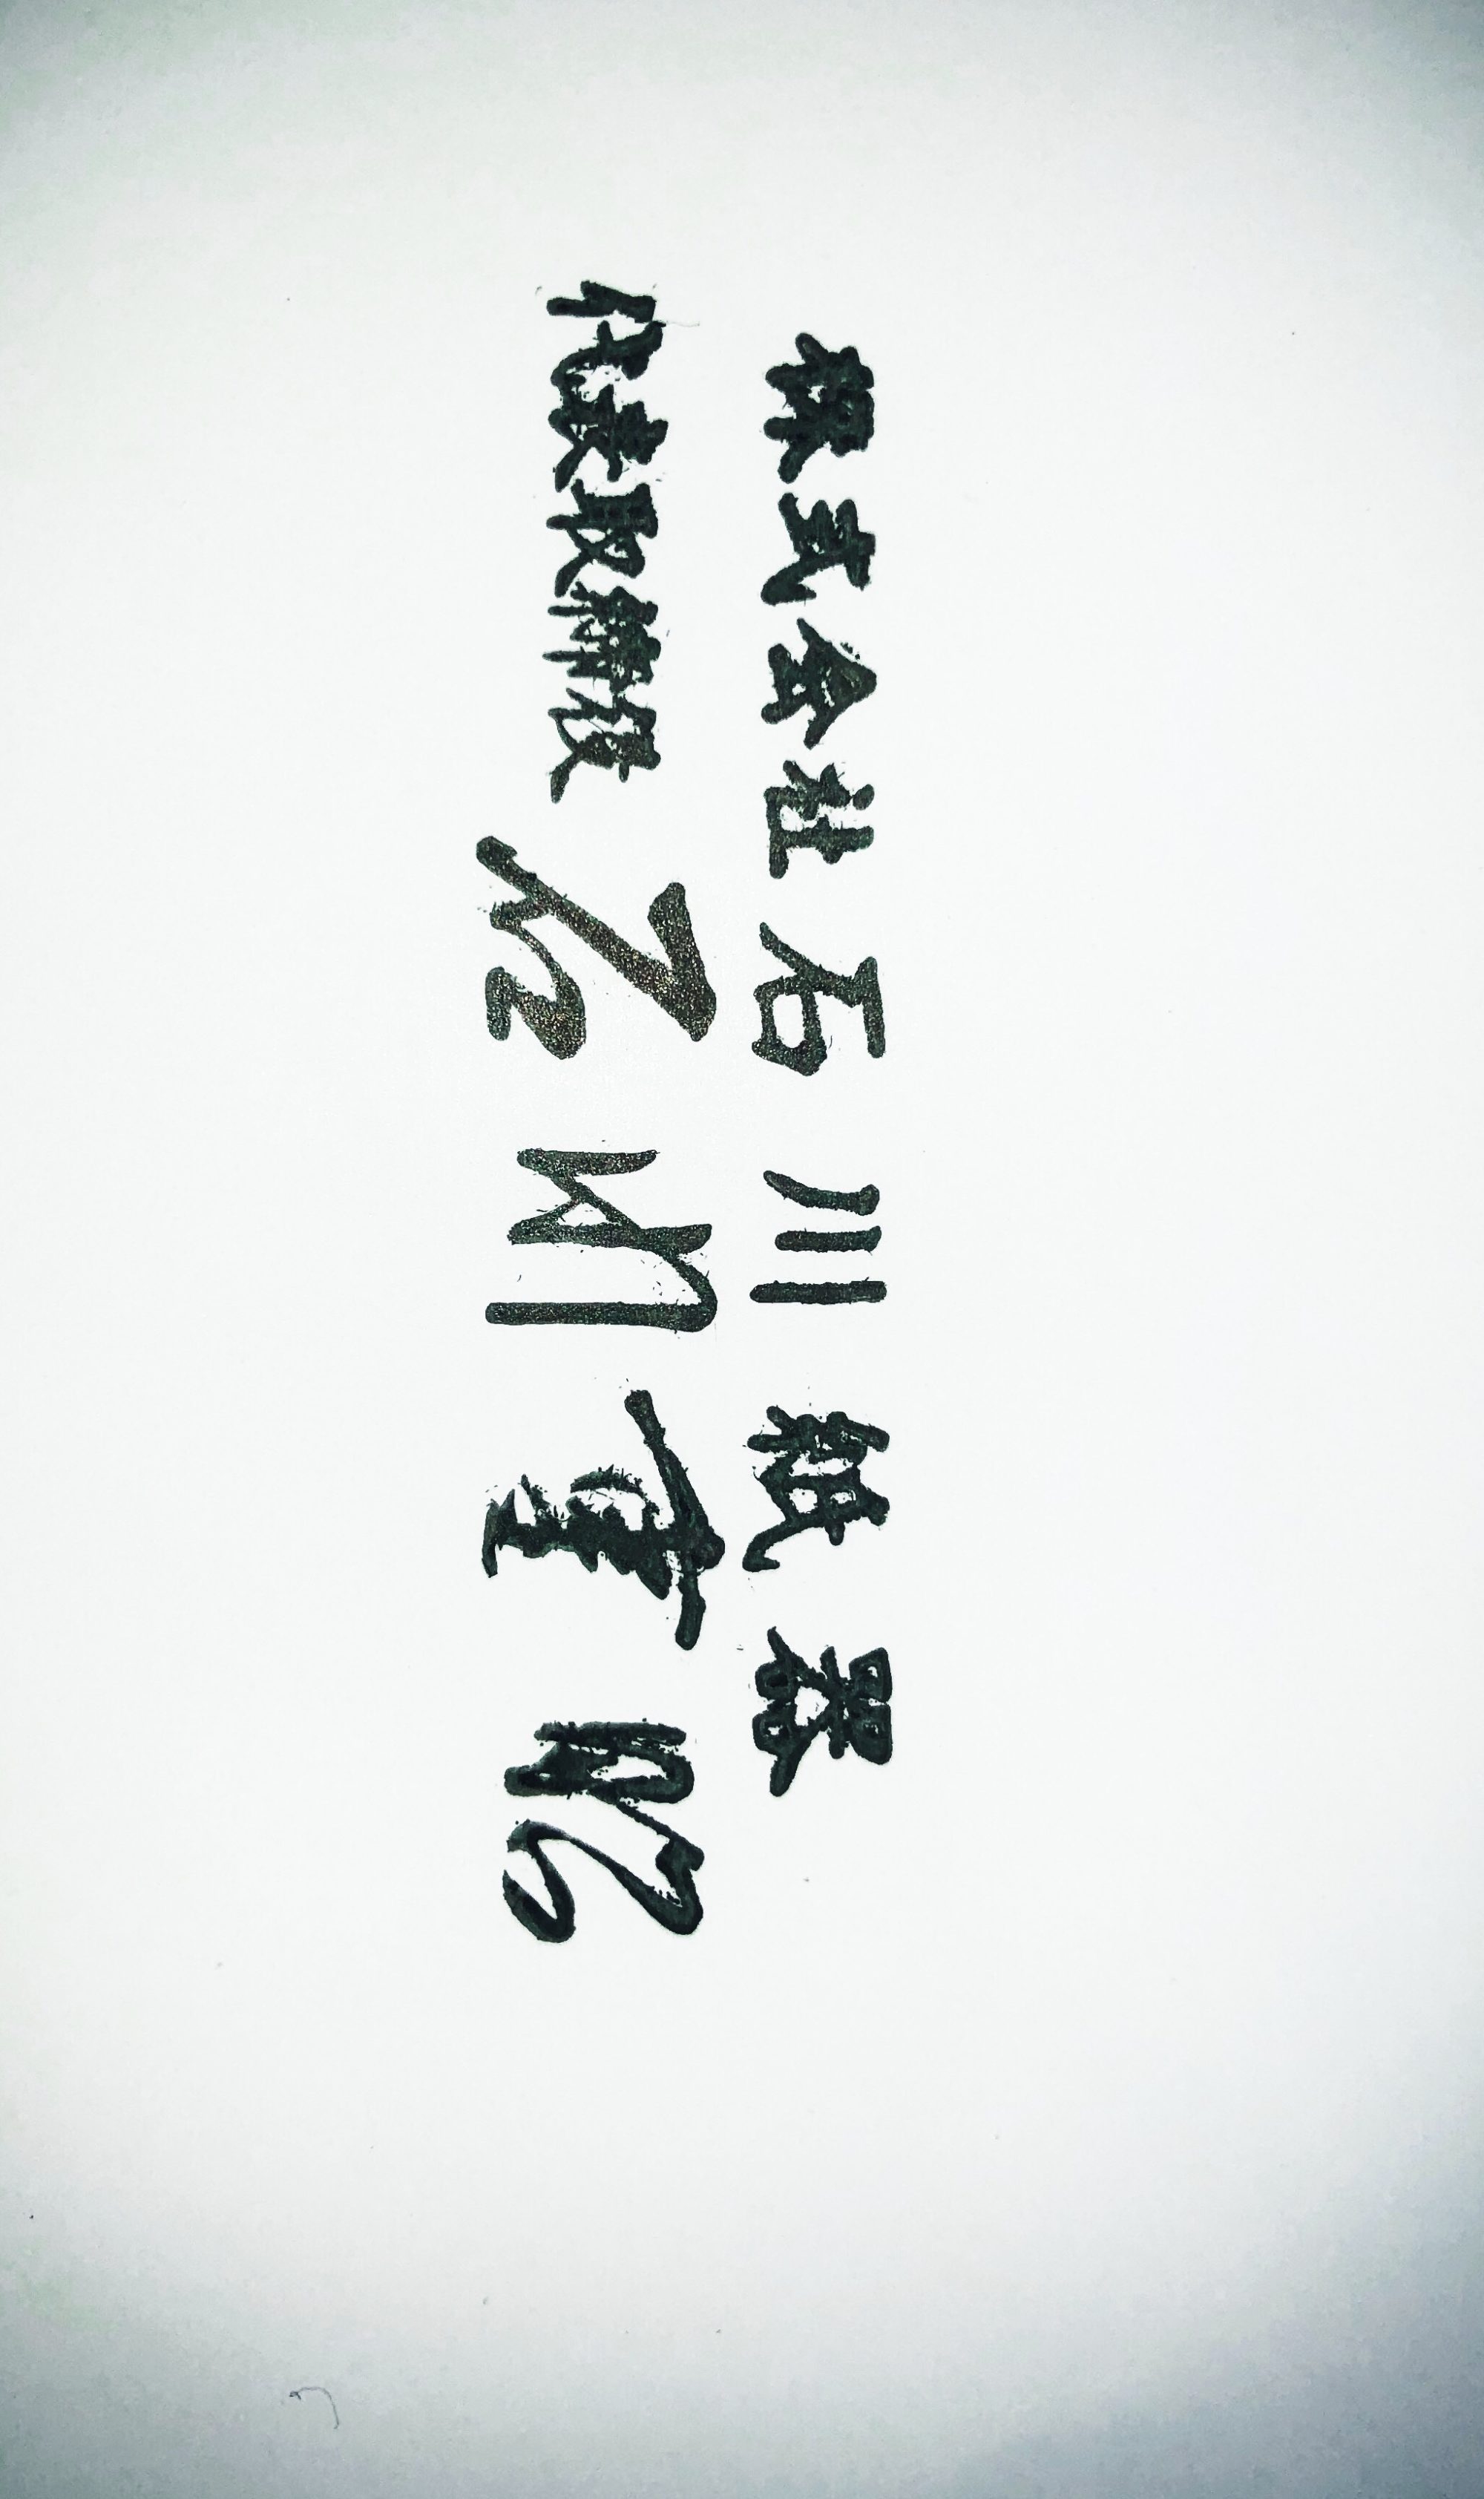 株式会社石川鉞器
代表取締役石川重昭